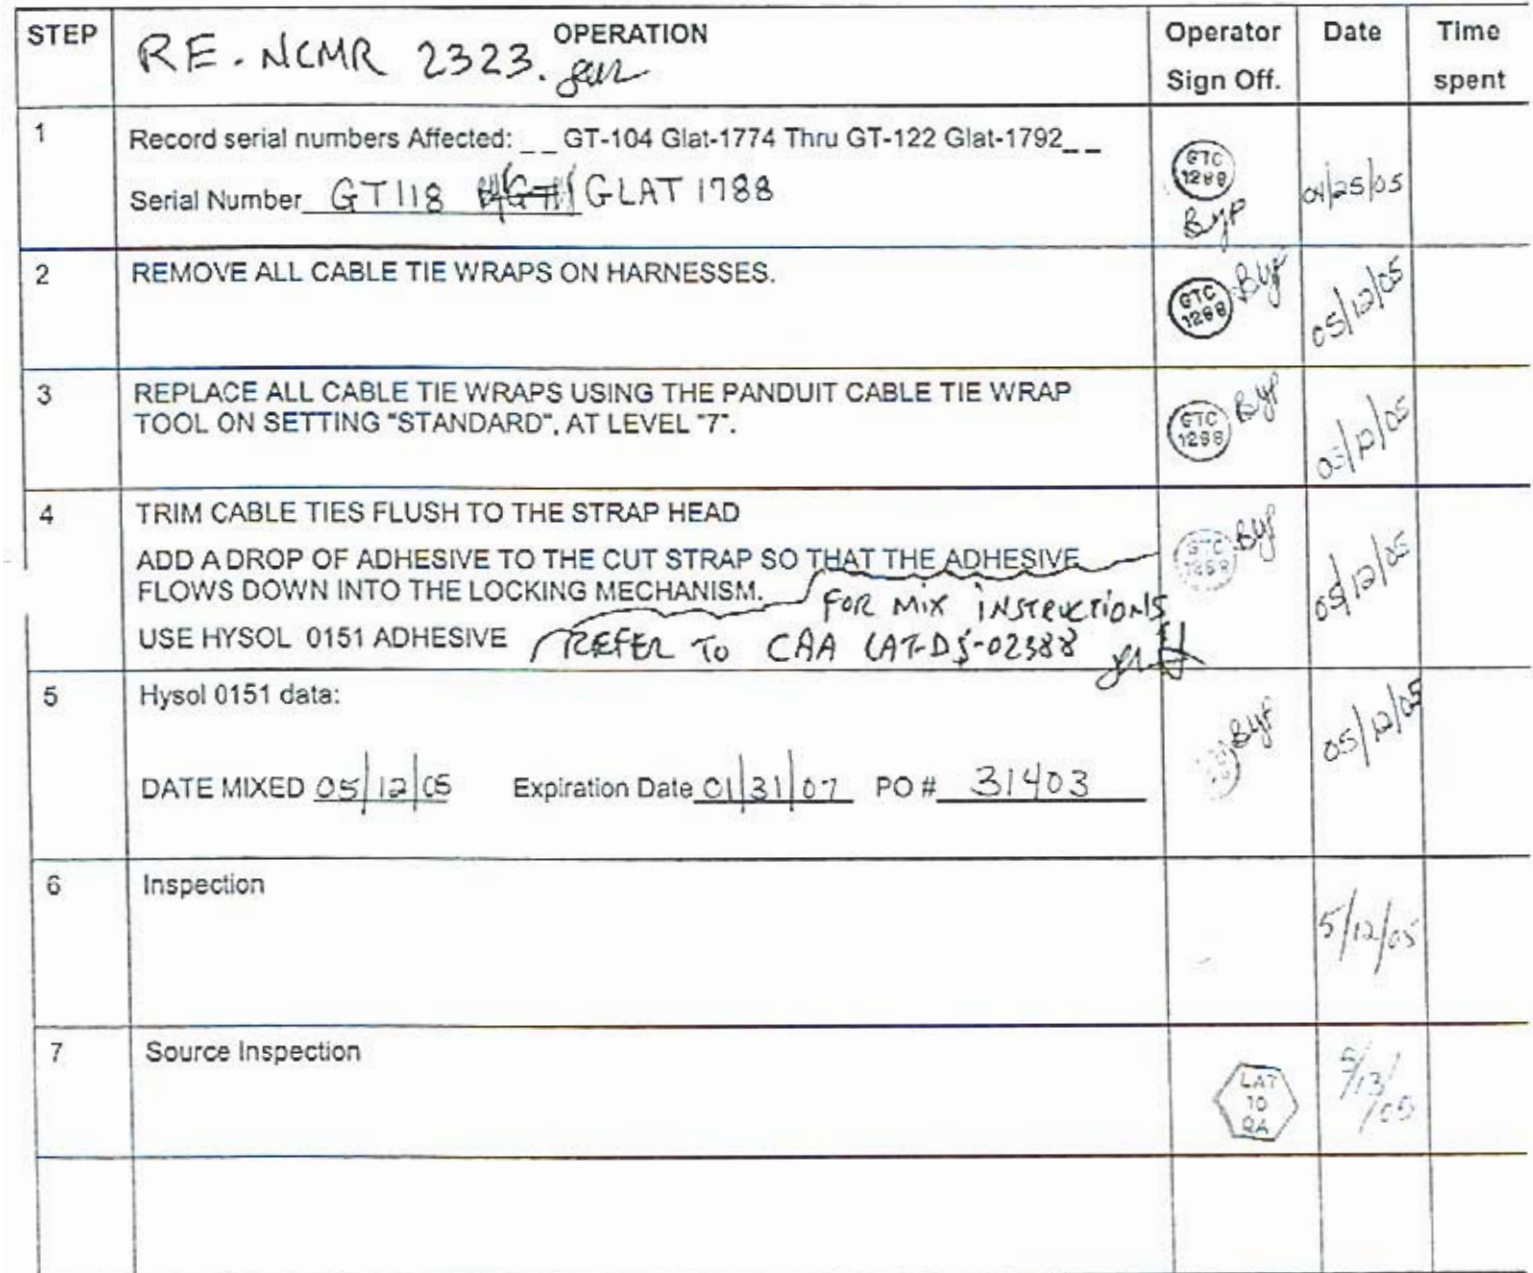 STEP
OPERATION
Operator
Sign Off.
Date
Time
spent
RE. NCMR 2323.
1
Record serial numbers Affected: _ _ GT-104 Glat-1774 Thru GT-122 Glat-1792_ _
Serial Number GT118 GLAT 1788
GTC
1288
Byf
04/25/05
2
REMOVE ALL CABLE TIE WRAPS ON HARNESSES.
GTC
1288
Byf
05/12/05
3
REPLACE ALL CABLE TIE WRAPS USING THE PANDUIT CABLE TIE WRAP
TOOL ON SETTING "STANDARD", AT LEVEL "7".
GTC
1288
Byf
05/12/05
4
TRIM CABLE TIES FLUSH TO THE STRAP HEAD
ADD A DROP OF ADHESIVE TO THE CUT STRAP SO THAT THE ADHESIVE
FLOWS DOWN INTO THE LOCKING MECHANISM.
FOR MIX INSTRUCTIONS
USE HYSOL 0151 ADHESIVE
REFER TO CAA LAT-DS-02388
GTC
1288
Byf
05/12/05
5
Hysol 0151 data:
DATE MIXED 05/12/05 Expiration Date 01/31/07 PO # 31403
Byf
05/12/05
6
Inspection
5/12/05
7
Source Inspection
LAT
10
QA
5/13/05